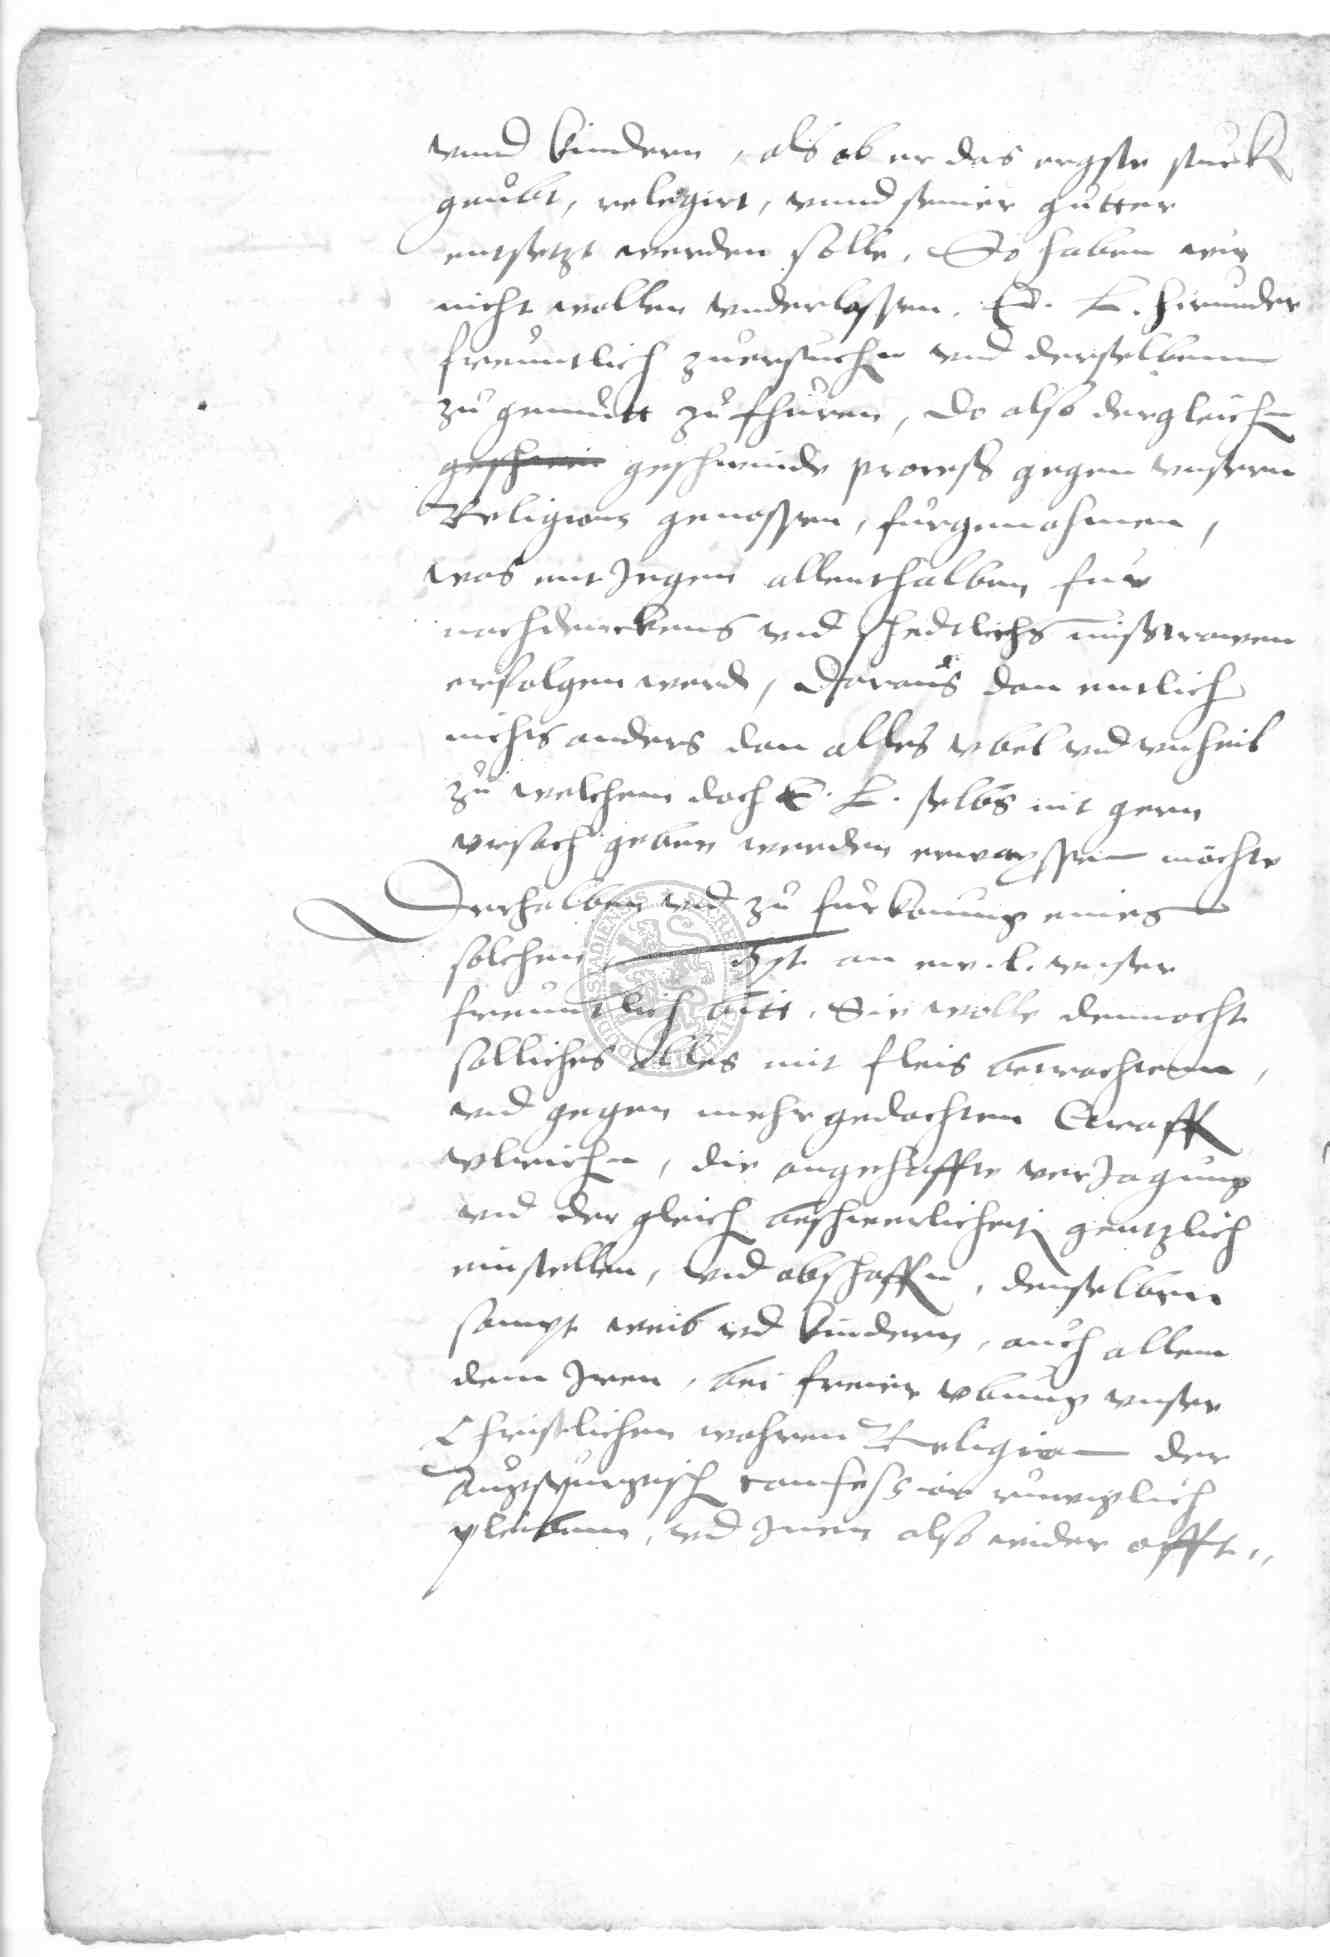 vnnd kindern, als ob er das ergste stuck
geubt, relegirt, vnnd seiner gutter
entsetzt werden solle, So haben wir
nicht wollen vnderlassen, E. L. hirunder
freuntlich zuersuchen vnd derselbenn
zu gemutt zufhuren, do also dergleichen
geschwinde process gegen vnsern
Religions genossen, furgenohmen,
was entJegen allenthalben fur
nachdenckens vnd schedlichs misstrawen
erfolgen werde, Daraus dan entlich
nichts anders dan alles vbel vnd vnheil
zu welchem doch E. L. selbs nit gern
vrsach geben werden erwachssenn möchte
Derhalben vnd zu furkomung eines
solchen, Ist an ew. l. vnser
freuntlich bitt, Sie wolle dennocht
solliches alles mit fleis betrachtenn,
vnd gegen mehr gedachtem Graff
vlrichen, die angehaffte verJagung
vnd der gleich beschwerlicheit gentzlich
einstellen, vnd abschaffen, denselben
sampt weib vnd kindern, auch allem
dem Iren, bei freier vbung vnser
Christlichen wahren Religion der
Augspurgisch confession ruwiglich
pleibenn, vnd Inen also wider